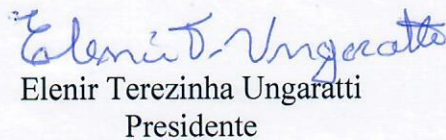 Elenir T. Ungaratti
Elenir Terezinha Ungaratti
Presidente